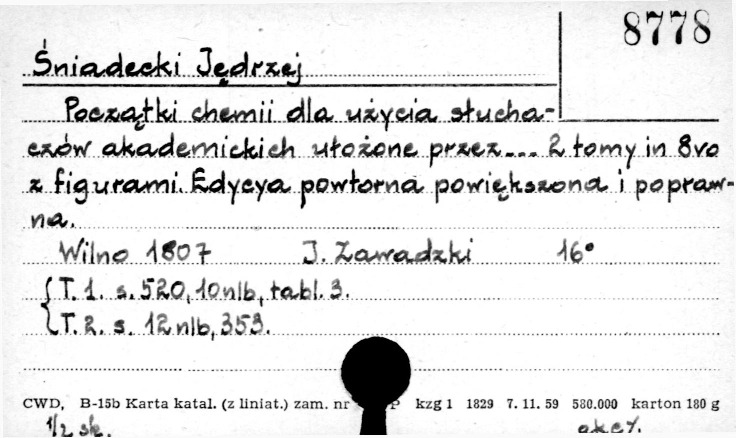 8778
Śniadecki Jędrzej
Początki chemii dla użycia słucha-
czów akademickich ułożone przez... 2 tomy in 8vo
z figurami. Edycya powtorna powiększona i popraw-
na.
Wilno 1807 J. Zawadzki 16°
T. 1. s. 520, 10 nlb, tabl. 3.
T. 2. s. 12 nlb, 353.
CWD, B-15b Karta katal. (z liniat.) zam. nr P kzg 1 1829 7. 11. 59 580.000 karton 180 g
1/2 sk. akc.